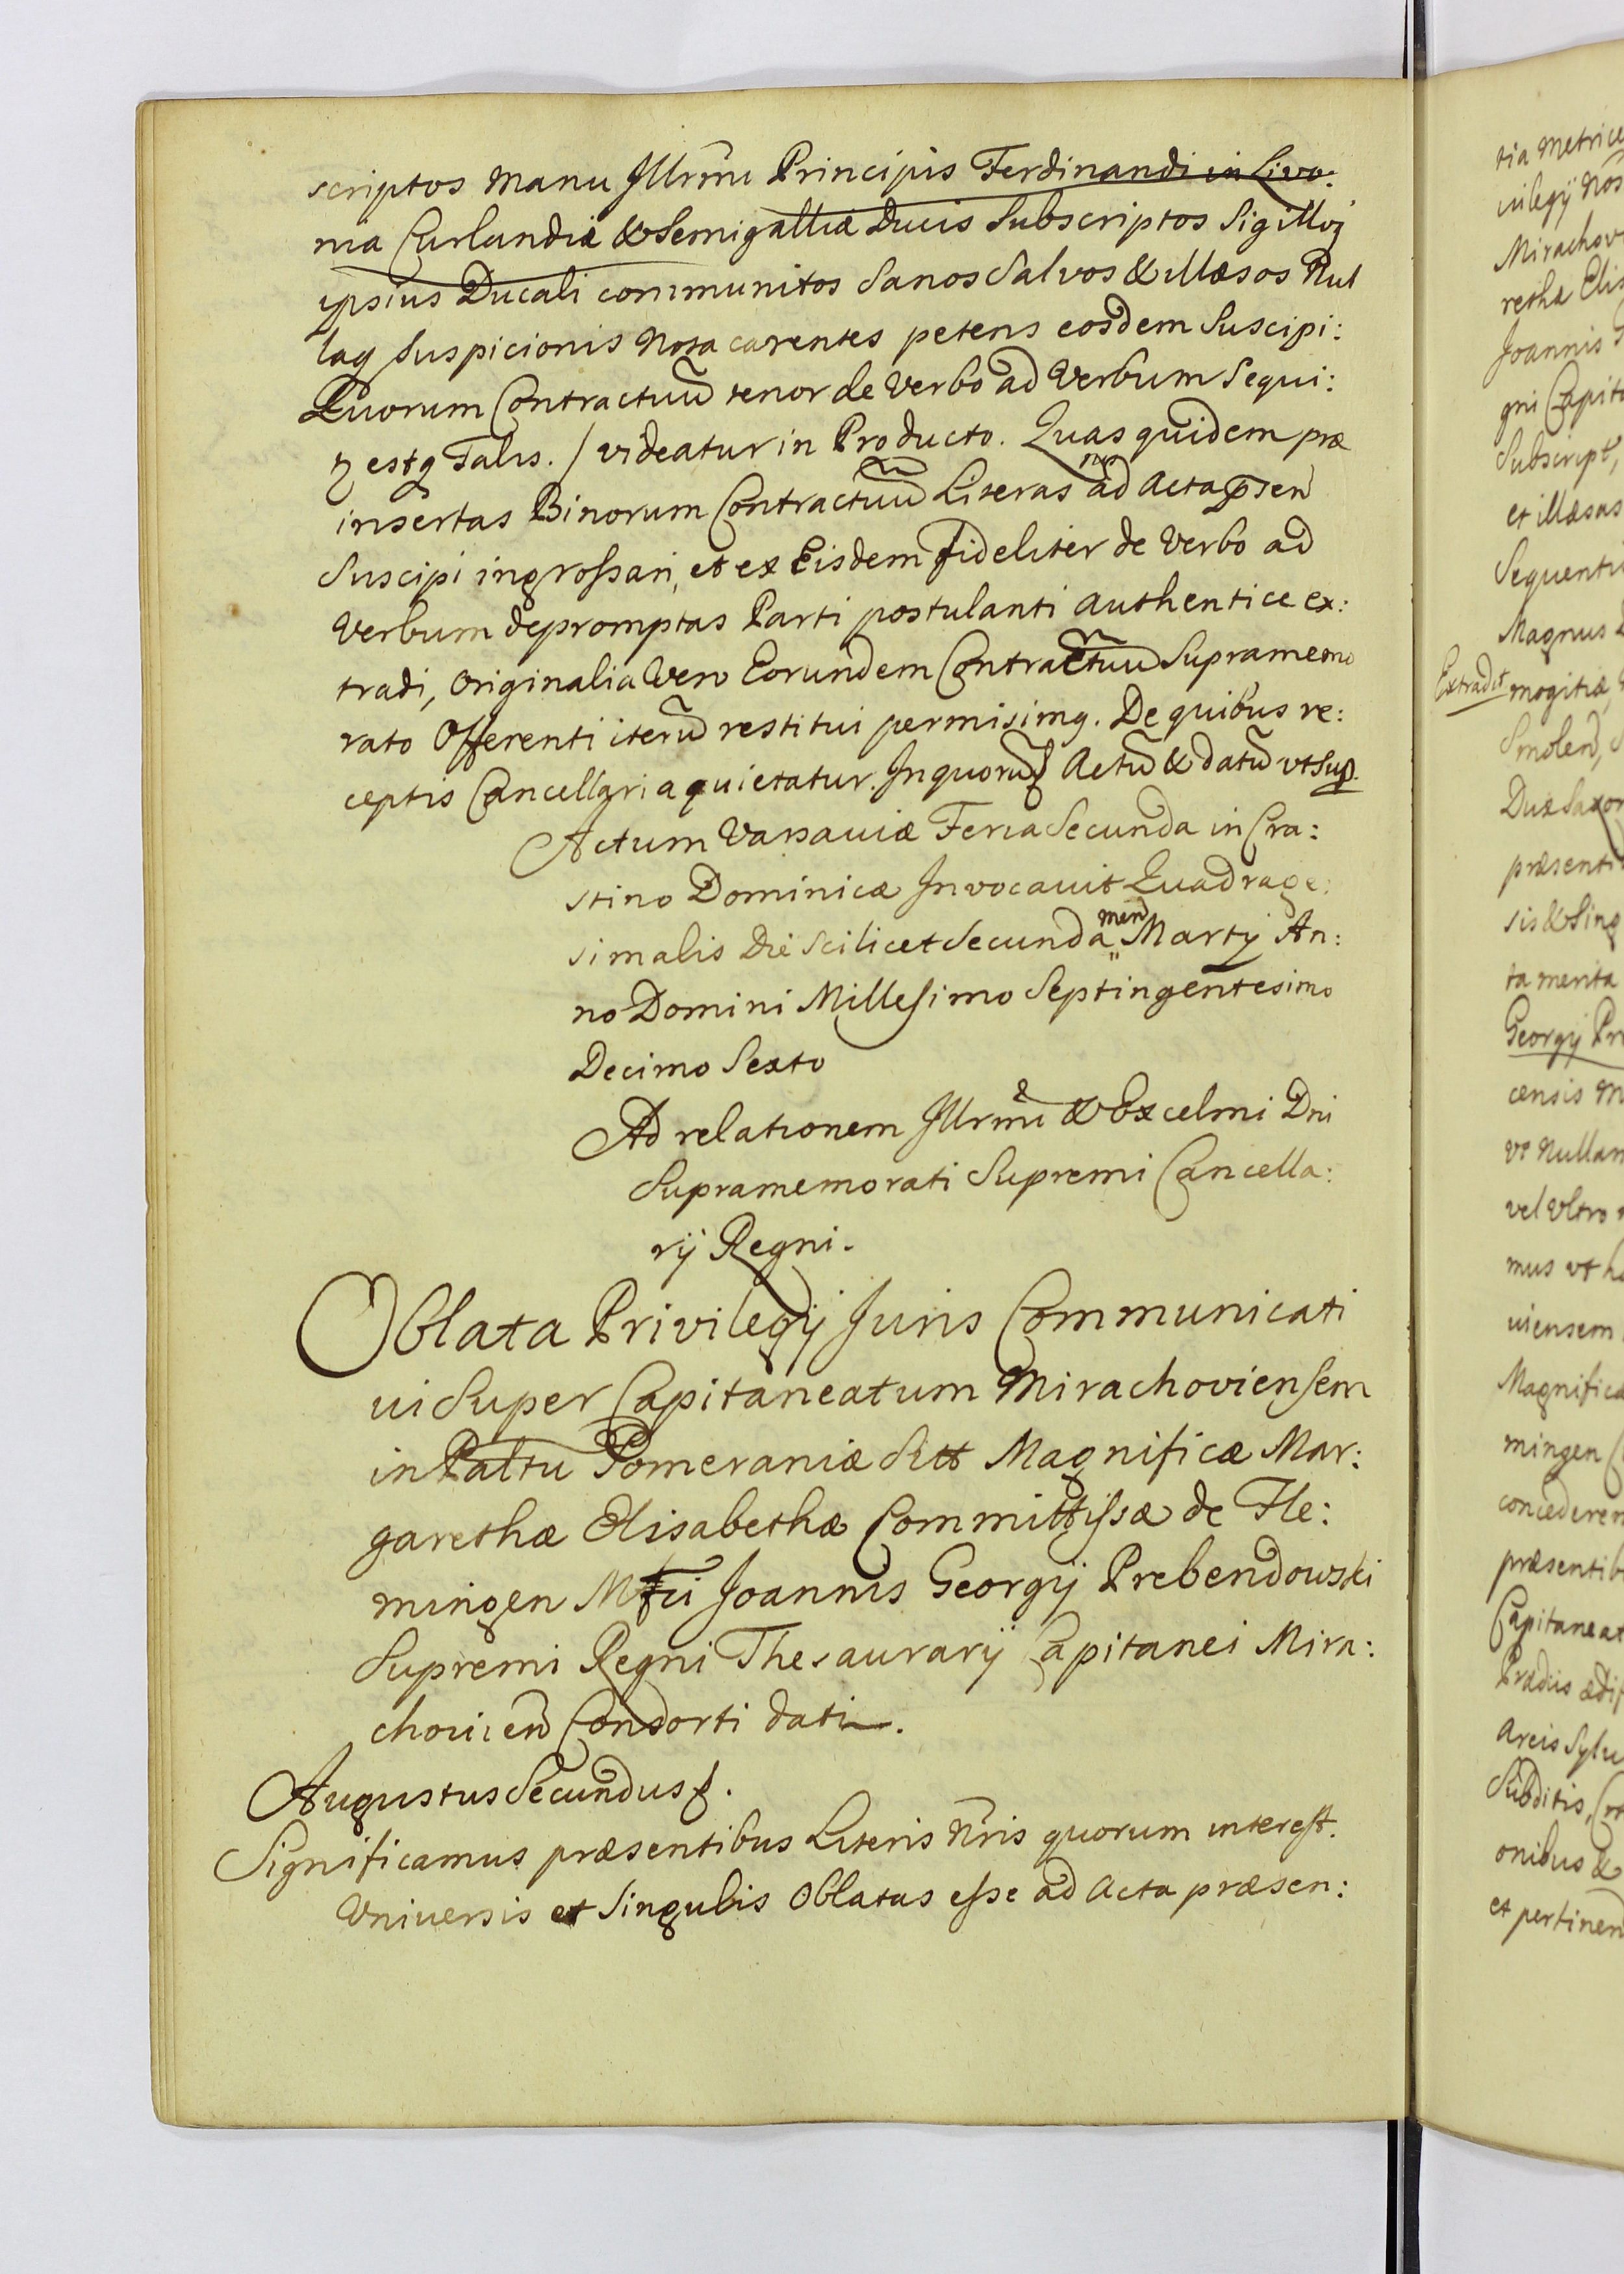 scriptos manu Illrmi Principis Ferdinandi in Livo:
nia Curlandiæ & Semigalliæ Ducis Subscriptos Sigilloq
ipsius Ducali communitos Sanos Salvos & illæsos Nul
laq Suspicionis Nota carentes petens eosdem Suscipi:
Quorum Contractuũ tenor de Verbo ad Verbum Sequi:
estq Talis. / videatur in Producto. Quas quidem præ
insertas Binorum Contractuũ Literas ad Acta p̃sen
Suscipi ingrossari, et ex Eisdem fideliter de Verbo ad
Verbum depromptas Parti postulanti authentice ex:
tradi, Originalia Vero Eorundem Contractuũ Supramemo
rato Offerenti iterũ restitui permisimq. De quibus re:
ceptis Cancellaria quietatur. In quorũ Actũ & datũ vt Sup.
Actum Varsauiæ Feria Secunda in Cra:
stino Dominicæ Invocavit Quadrage:
simalis Die Scilicet Secunda men Martij An:
no Domini Millesimo Septingentesimo
Decimo Sexto
Ad relationem Illrmi & Excelmi Dni
Supramemorati Supremi Cancella:
rij Regni.
Oblata Privilegij Juris Communicati
ui Super Capitaneatum Mirachoviensem
in Paltu Pomeraniæ Sitt Magnificæ Mar:
garethæ Elisabethæ Committissæ de Fle:
mingen Mfci Joannis Georgij Prebendowski
Supremi Regni Thesaurarij Capitanei Mira:
chovien Consorti dati.
Augustus Secundus.
Significamus præsentibus Literis Nris quorum interest.
Vniuersis et Singulis Oblatas esse ad Acta præsen:
tia Metrice
uilegij Nos
Mirachov
rethæ Elis
Joannis
gni Capita
Subscript,
et illæsas
Sequenti
Magnus
Extradit
mogitiæ,
Smolen,
Dux Saxon
præsenti
sis & Sing
ta merita
Georgij Pr
censis M
vt Nullam
vel Vltro
mus vt
uiensem
Magnifica
mingen
concederem
præsentib
Capitaneat
Prædiis ædif
Areis Sylu
Subditis,
onibus &
et pertinen